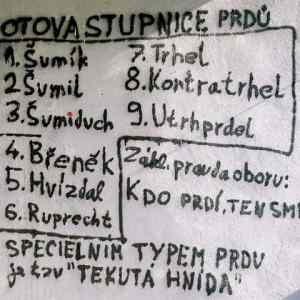 OTOVA STUPNICE PRDŮ
1. Šumík
2 Šumil
3. Šumiduch
4. Břeněk
5. Hvízdal
6. Ruprecht
7. Trhel
8. Kontratrhel
9. Utrhprdel
Zákl. pravda oboru:
KDO PRDÍ, TEN SMI
SPECIELNÍM TYPEM PRDU
je tzv "TEKUTÁ HNÍDA"